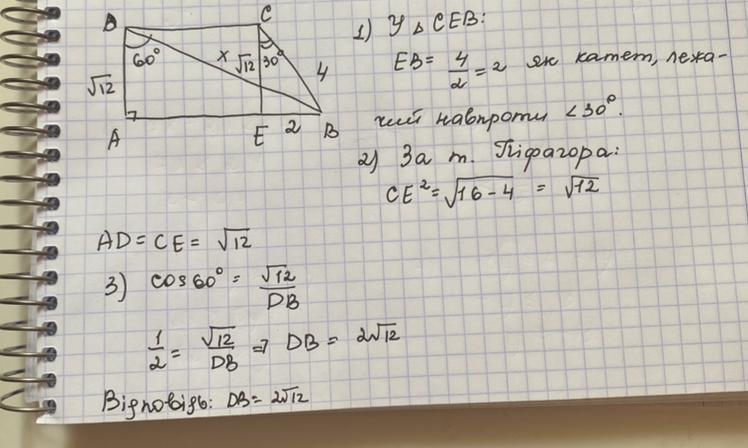 D C
60° x √12 30° 4
√12
A E 2 B
1) У △ CEB:
EB = 4/2 = 2 як катет, лежа-
чий навпроти ∠30°.
2) За т. Піфагора:
CE² = √16-4 = √12
AD = CE = √12
3) cos60° = √12/DB
1/2 = √12/DB ⇒ DB = 2√12
Відповідь: DB = 2√12